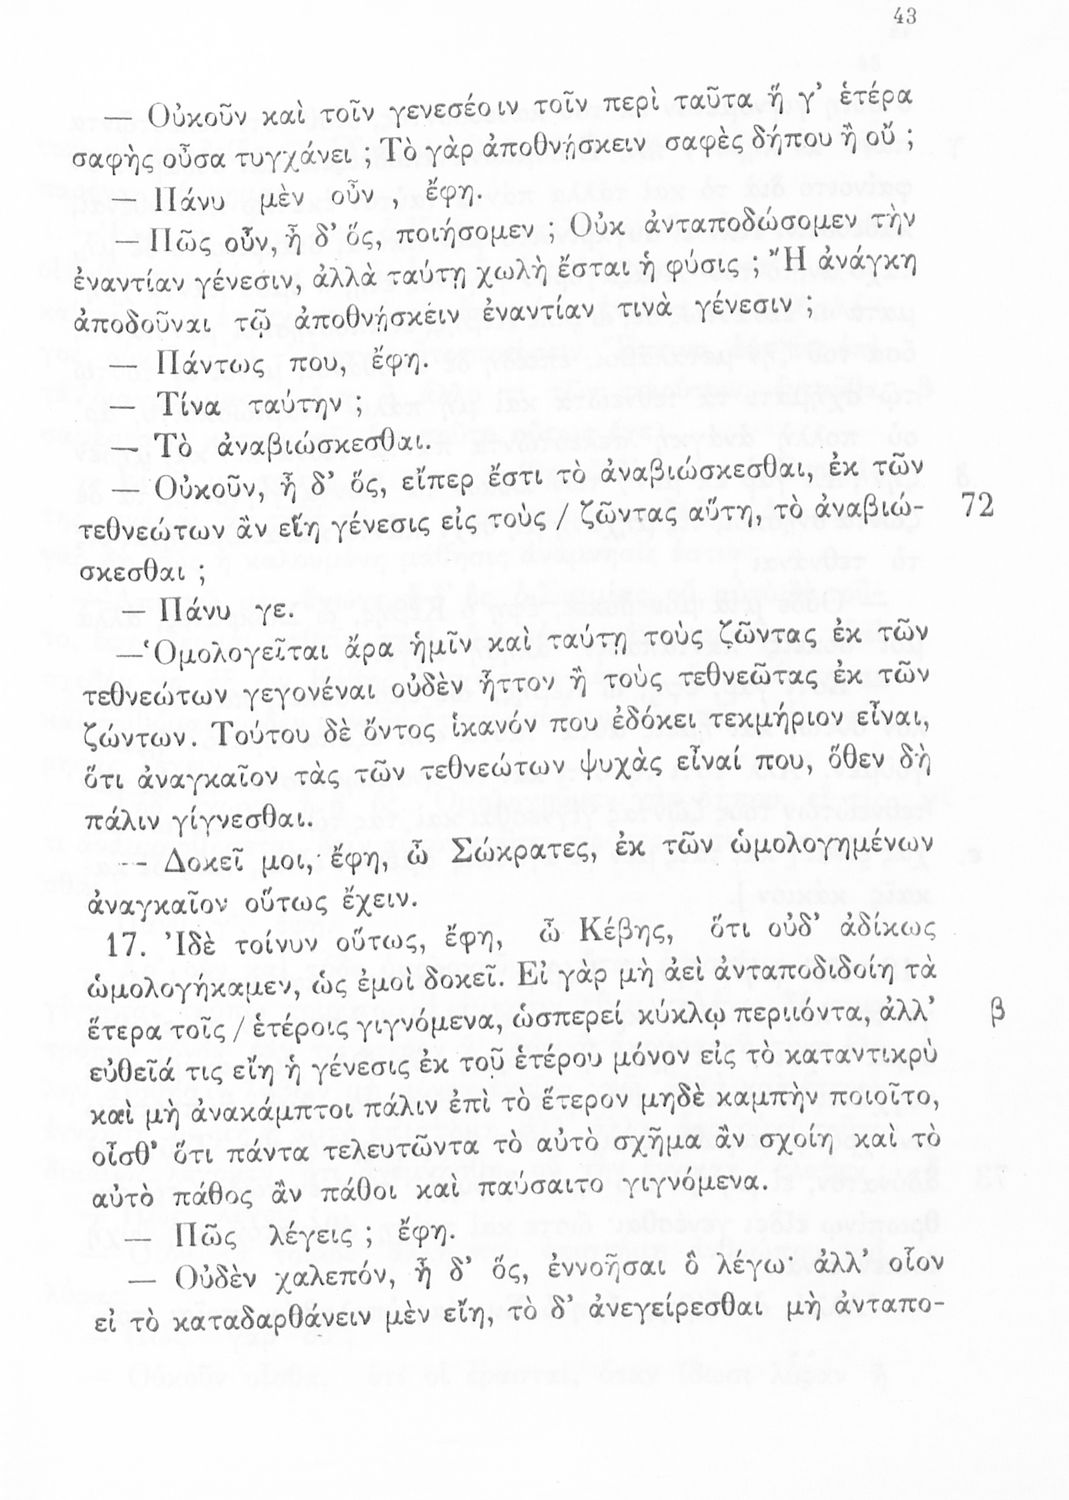 43
— Οὐκοῦν καὶ τοῖν γενεσέοιν τοῖν περὶ ταῦτα ἥ γ’ ἑτέρα
σαφὴς οὖσα τυγχάνει ; Τὸ γὰρ ἀποθνῄσκειν σαφὲς δήπου ἢ οὔ ;
— Πάνυ μὲν οὖν , ἔφη.
— Πῶς οὖν, ἦ δ’ ὅς, ποιήσομεν ; Οὐκ ἀνταποδώσομεν τὴν
ἐναντίαν γένεσιν, ἀλλὰ ταύτῃ χωλὴ ἔσται ἡ φύσις ; Ἢ ἀνάγκη
ἀποδοῦναι τῷ ἀποθνῄσκειν ἐναντίαν τινὰ γένεσιν ;
— Πάντως που, ἔφη.
— Τίνα ταύτην ;
— Τὸ ἀναβιώσκεσθαι.
— Οὐκοῦν, ἦ δ’ ὅς, εἴπερ ἔστι τὸ ἀναβιώσκεσθαι, ἐκ τῶν
τεθνεώτων ἂν εἴη γένεσις εἰς τοὺς / ζῶντας αὕτη, τὸ ἀναβιώ- 72
σκεσθαι ;
— Πάνυ γε.
—Ὁμολογεῖται ἄρα ἡμῖν καὶ ταύτῃ τοὺς ζῶντας ἐκ τῶν
τεθνεώτων γεγονέναι οὐδὲν ἧττον ἢ τοὺς τεθνεῶτας ἐκ τῶν
ζώντων. Τούτου δὲ ὄντος ἱκανόν που ἐδόκει τεκμήριον εἶναι,
ὅτι ἀναγκαῖον τὰς τῶν τεθνεώτων ψυχὰς εἶναί που, ὅθεν δὴ
πάλιν γίγνεσθαι.
— Δοκεῖ μοι, ἔφη, ὦ Σώκρατες, ἐκ τῶν ὡμολογημένων
ἀναγκαῖον οὕτως ἔχειν.
17. Ἰδὲ τοίνυν οὕτως, ἔφη, ὦ Κέβης, ὅτι οὐδ’ ἀδίκως
ὡμολογήκαμεν, ὡς ἐμοὶ δοκεῖ. Εἰ γὰρ μὴ ἀεὶ ἀνταποδιδοίη τὰ
ἕτερα τοῖς / ἑτέροις γιγνόμενα, ὡσπερεί κύκλῳ περιιόντα, ἀλλ’ β
εὐθεῖά τις εἴη ἡ γένεσις ἐκ τοῦ ἑτέρου μόνον εἰς τὸ καταντικρὺ
καὶ μὴ ἀνακάμπτοι πάλιν ἐπὶ τὸ ἕτερον μηδὲ καμπὴν ποιοῖτο,
οἶσθ’ ὅτι πάντα τελευτῶντα τὸ αὐτὸ σχῆμα ἂν σχοίη καὶ τὸ
αὐτὸ πάθος ἂν πάθοι καὶ παύσαιτο γιγνόμενα.
— Πῶς λέγεις ; ἔφη.
— Οὐδὲν χαλεπόν, ἦ δ’ ὅς, ἐννοῆσαι ὃ λέγω· ἀλλ’ οἷον
εἰ τὸ καταδαρθάνειν μὲν εἴη, τὸ δ’ ἀνεγείρεσθαι μὴ ἀνταπο-